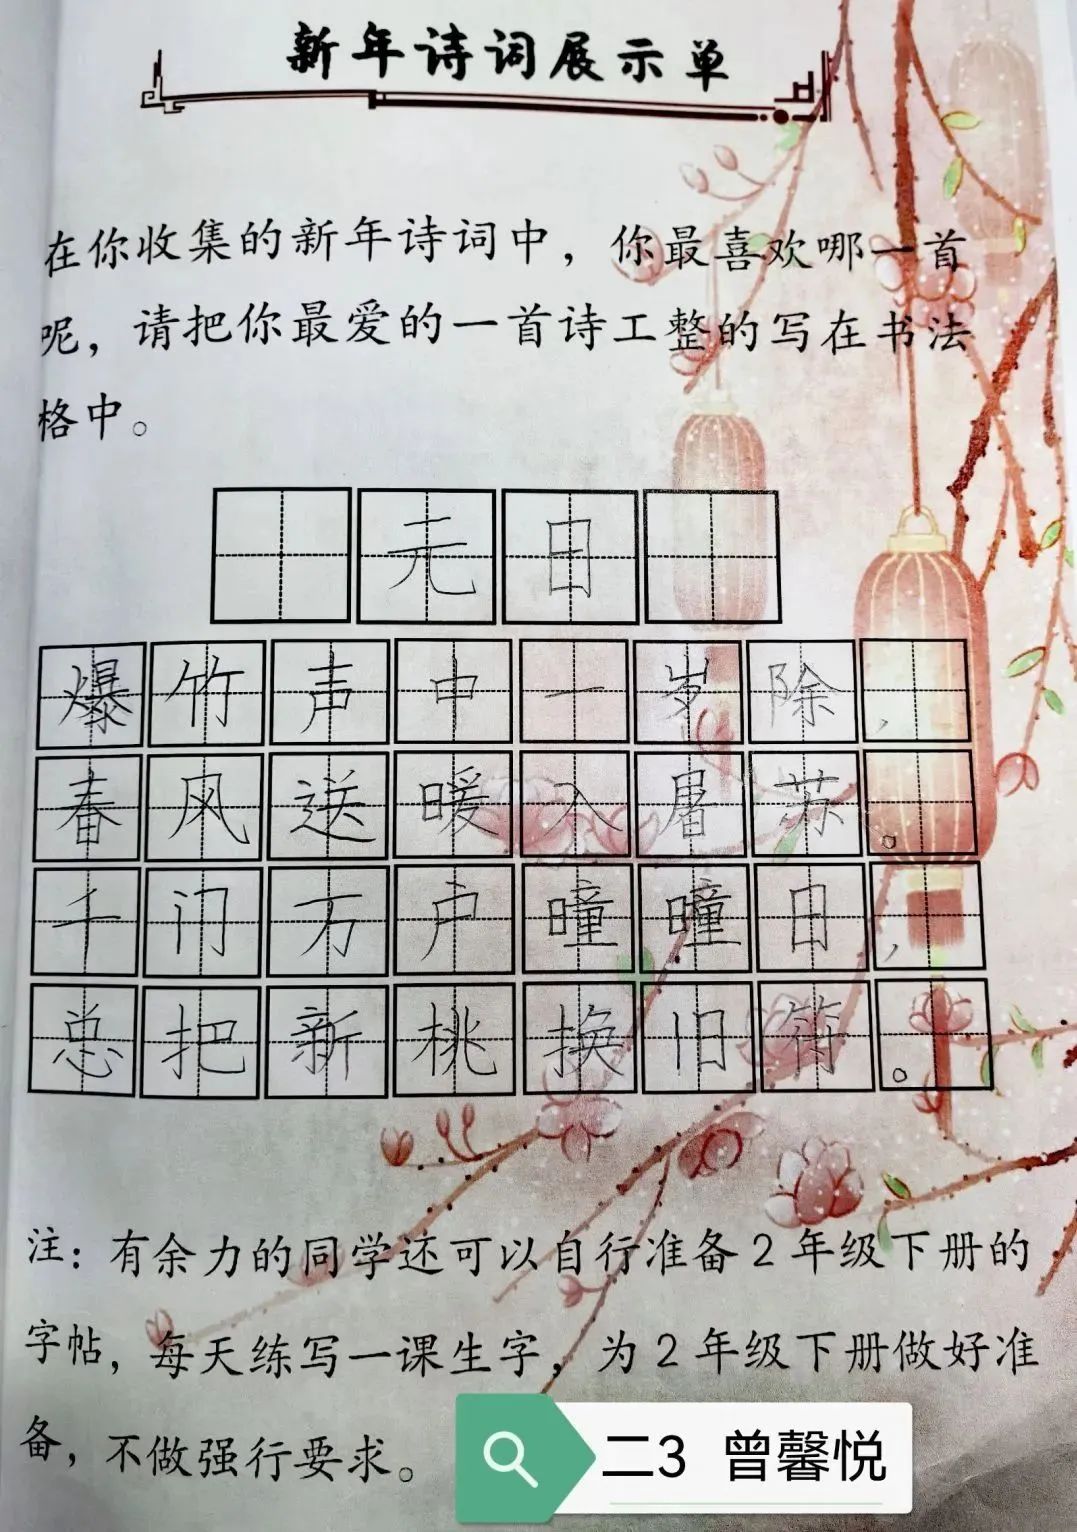 新年诗词展示单
在你收集的新年诗词中，你最喜欢哪一首
呢，请把你最爱的一首诗工整的写在书法
格中。
元日
爆竹声中一岁除，
春风送暖入屠苏。
千门万户曈曈日，
总把新桃换旧符。
注：有余力的同学还可以自行准备2年级下册的
字帖，每天练写一课生字，为2年级下册做好准
备，不做强行要求。
二3 曾馨悦